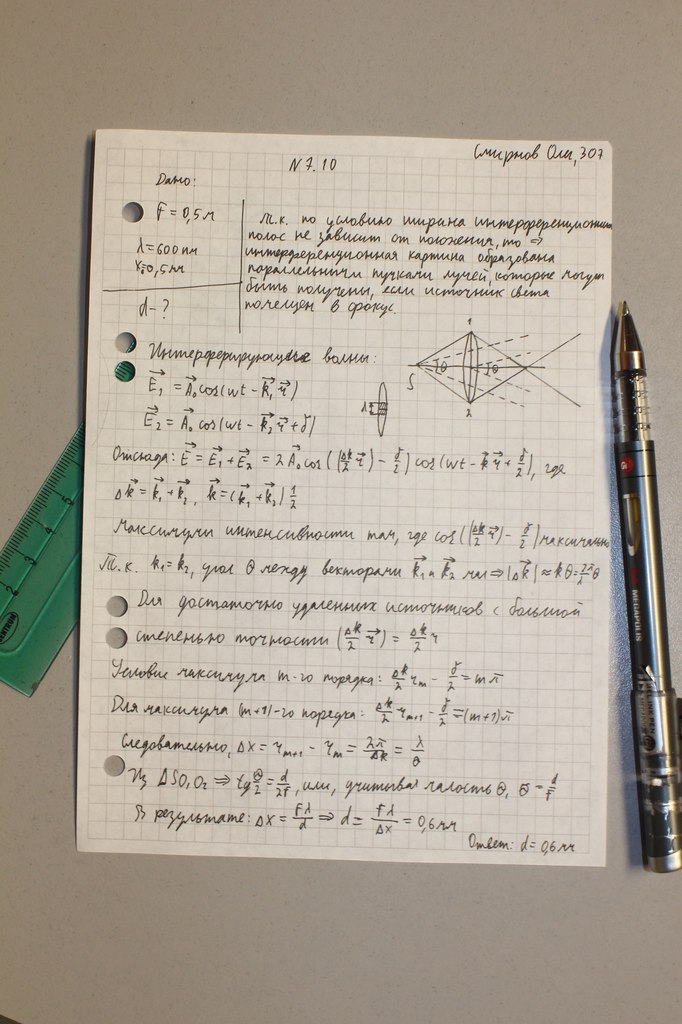 Смирнов Олег, 307
N 7.10
Дано:
F = 0,5 м
λ = 600 нм
x = 0,5 мм
d - ?
Т.к. по условию ширина интерференционных
полос не зависит от положения, то ⇒
интерференционная картина образована
параллельными пучками лучей, которые могут
быть получены, если источник света
помещен в фокус.
Интерферирующие волны:
E₁ = A₀ cos(wt - k₁ r)
E₂ = A₀ cos(wt - k₂ r + δ)
1
S θ θ
2
d
Отсюда: E = E₁ + E₂ = 2 A₀ cos((Δk/2 r) - δ/2) cos(wt - k r + δ/2), где
Δk = k₁ + k₂, k = (k₁ + k₂) 1/2
Максимумы интенсивности там, где cos((Δk/2 r) - δ/2) максимально
Т.к. k₁ = k₂, угол θ между векторами k₁ и k₂ мал ⇒ |Δk| ≈ kθ = 2π/λ θ
Для достаточно удаленных источников с большой
степенью точности (Δk/2 r) = Δk/2 r
Условие максимума m-го порядка: Δk/2 r_m - δ/2 = mπ
Для максимума (m+1)-го порядка: Δk/2 r_m+1 - δ/2 = (m+1)π
Следовательно, Δx = r_m+1 - r_m = 2π/Δk = λ/θ
Из ΔSO₁O₂ ⇒ tg θ/2 = d/2F, или, учитывая малость θ, θ = d/F
В результате: Δx = Fλ/d ⇒ d = Fλ/Δx = 0,6 мм
Ответ: d = 0,6 мм
MEGAPOLIS